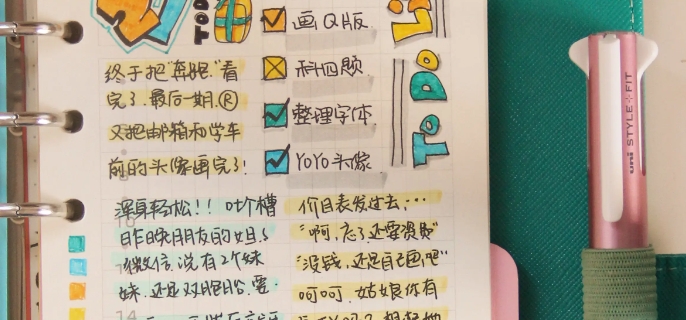 TODO
画Q版.
科四题
整理字体.
YoYo头像
To Do
终于把"奔跑"看
完了.最后一期.®
又把邮箱和学车
前的头像画完了!
浑身轻松!! 吐个槽
昨晚朋友的妲
微信.说有2个妹
妹.还
价目表发过去…
"啊,
"没钱,还是自己画吧"
呵呵.姑娘你有
14
uni STYLE FIT